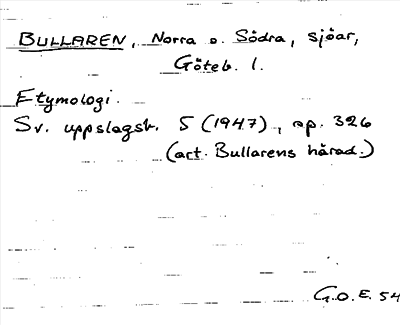 BULLAREN, Norra o. Södra, sjöar,
Göteb. l.
Etymologi.
Sv. uppslagsb. 5 (1947), sp. 326
(art. Bullarens härad.)
G.O.E. 54